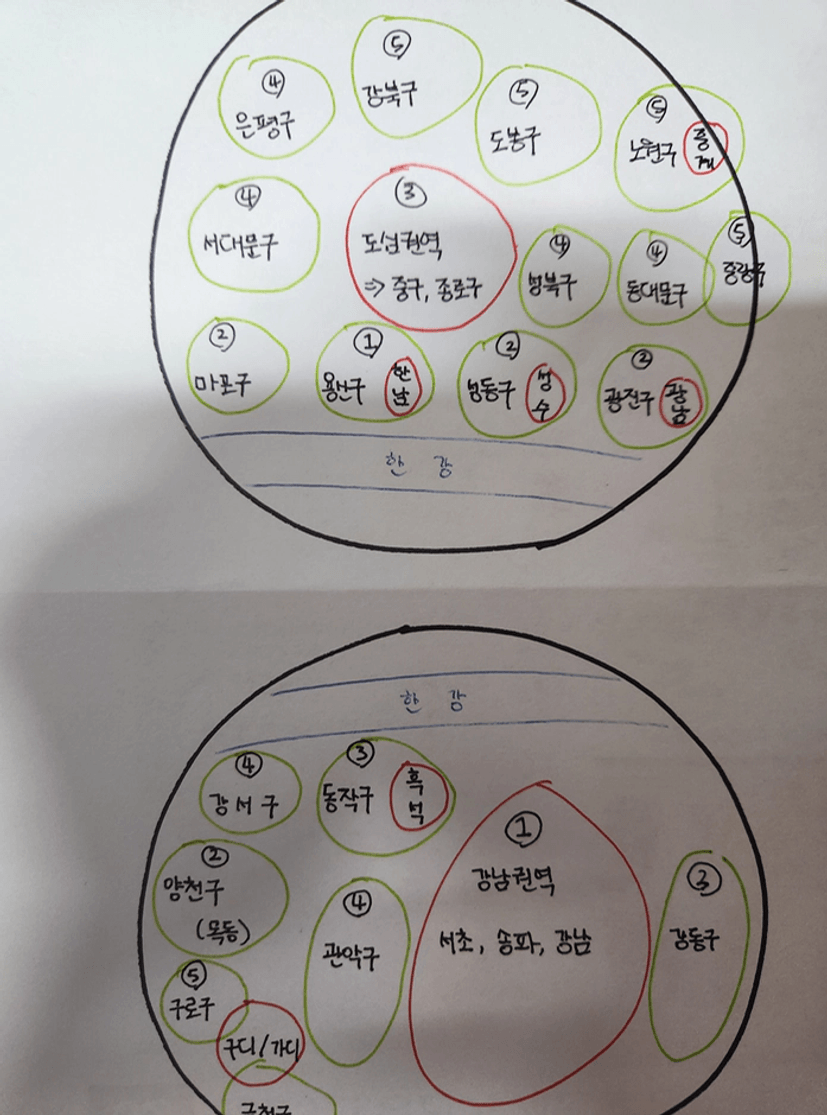 ⑤
강북구
④
은평구
⑤
도봉구
⑤
노원구
중
계
④
서대문구
③
도심권역
=> 중구, 종로구
④
성북구
④
동대문구
⑤
중랑구
②
마포구
①
용산구
한
남
②
성동구
성
수
②
광진구
광
남
한 강
한 강
④
강서구
③
동작구
흑
석
②
양천구
(목동)
④
관악구
①
강남권역
서초, 송파, 강남
③
강동구
⑤
구로구
구디/가디
금천구